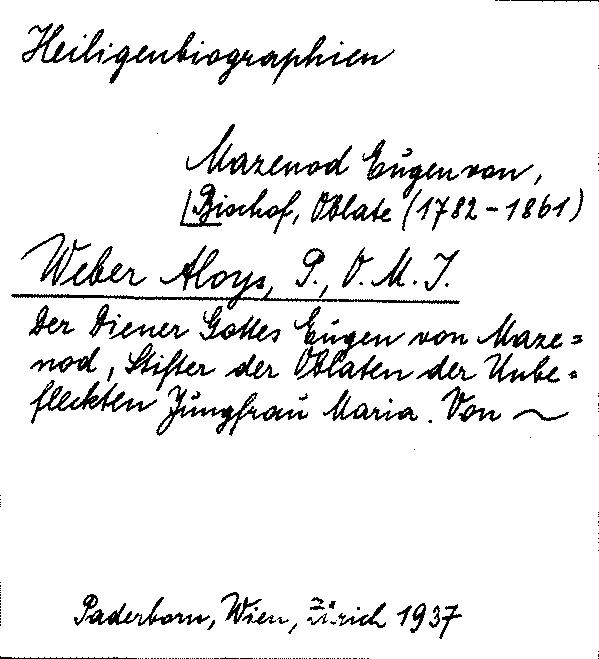 Heiligenbiographien
Mazenod Eugen von,
Bischof, Oblate (1782-1861)
Weber Aloys, P., O. M. J.
Der Diener Gottes Eugen von Maze=
nod, Stifter der Oblaten der Unbe=
fleckten Jungfrau Maria. Von ~
Paderborn, Wien, Zürich 1937